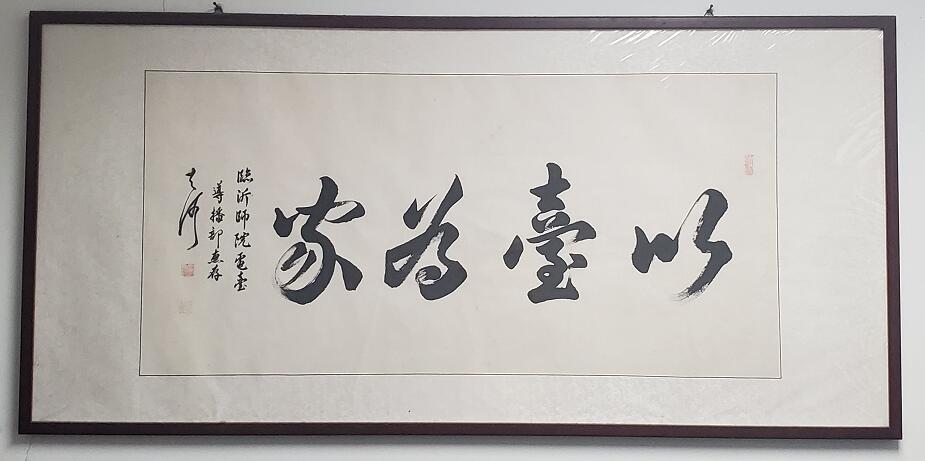 以臺為家
臨沂師院電臺
導播部惠存